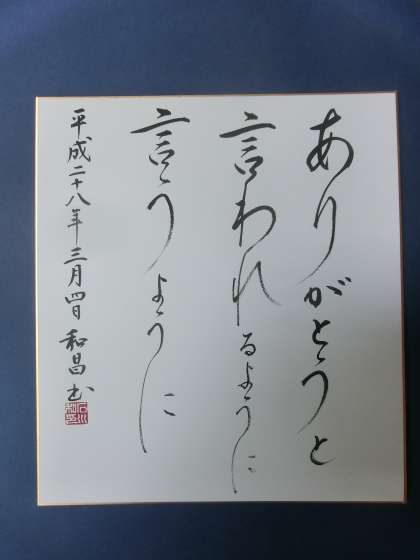 ありがとうと
言われるように
言うように
平成二十八年三月四日 和昌 書